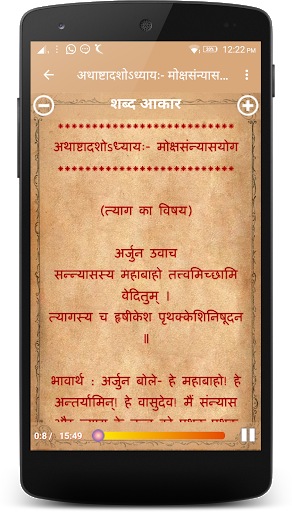 12:22 PM
अथाष्टादशोऽध्यायः- मोक्षसंन्यास...
शब्द आकार
*******************************
अथाष्टादशोऽध्यायः- मोक्षसंन्यासयोग
*******************************
(त्याग का विषय)
अर्जुन उवाच
सन्न्यासस्य महाबाहो तत्त्वमिच्छामि
वेदितुम् ।
त्यागस्य च हृषीकेश पृथक्केशिनिषूदन
॥
भावार्थ : अर्जुन बोले- हे महाबाहो! हे
अन्तर्यामिन्! हे वासुदेव! मैं संन्यास
और त्याग के तत्व को पृथक्-पृथक्
0:8 / 15:49